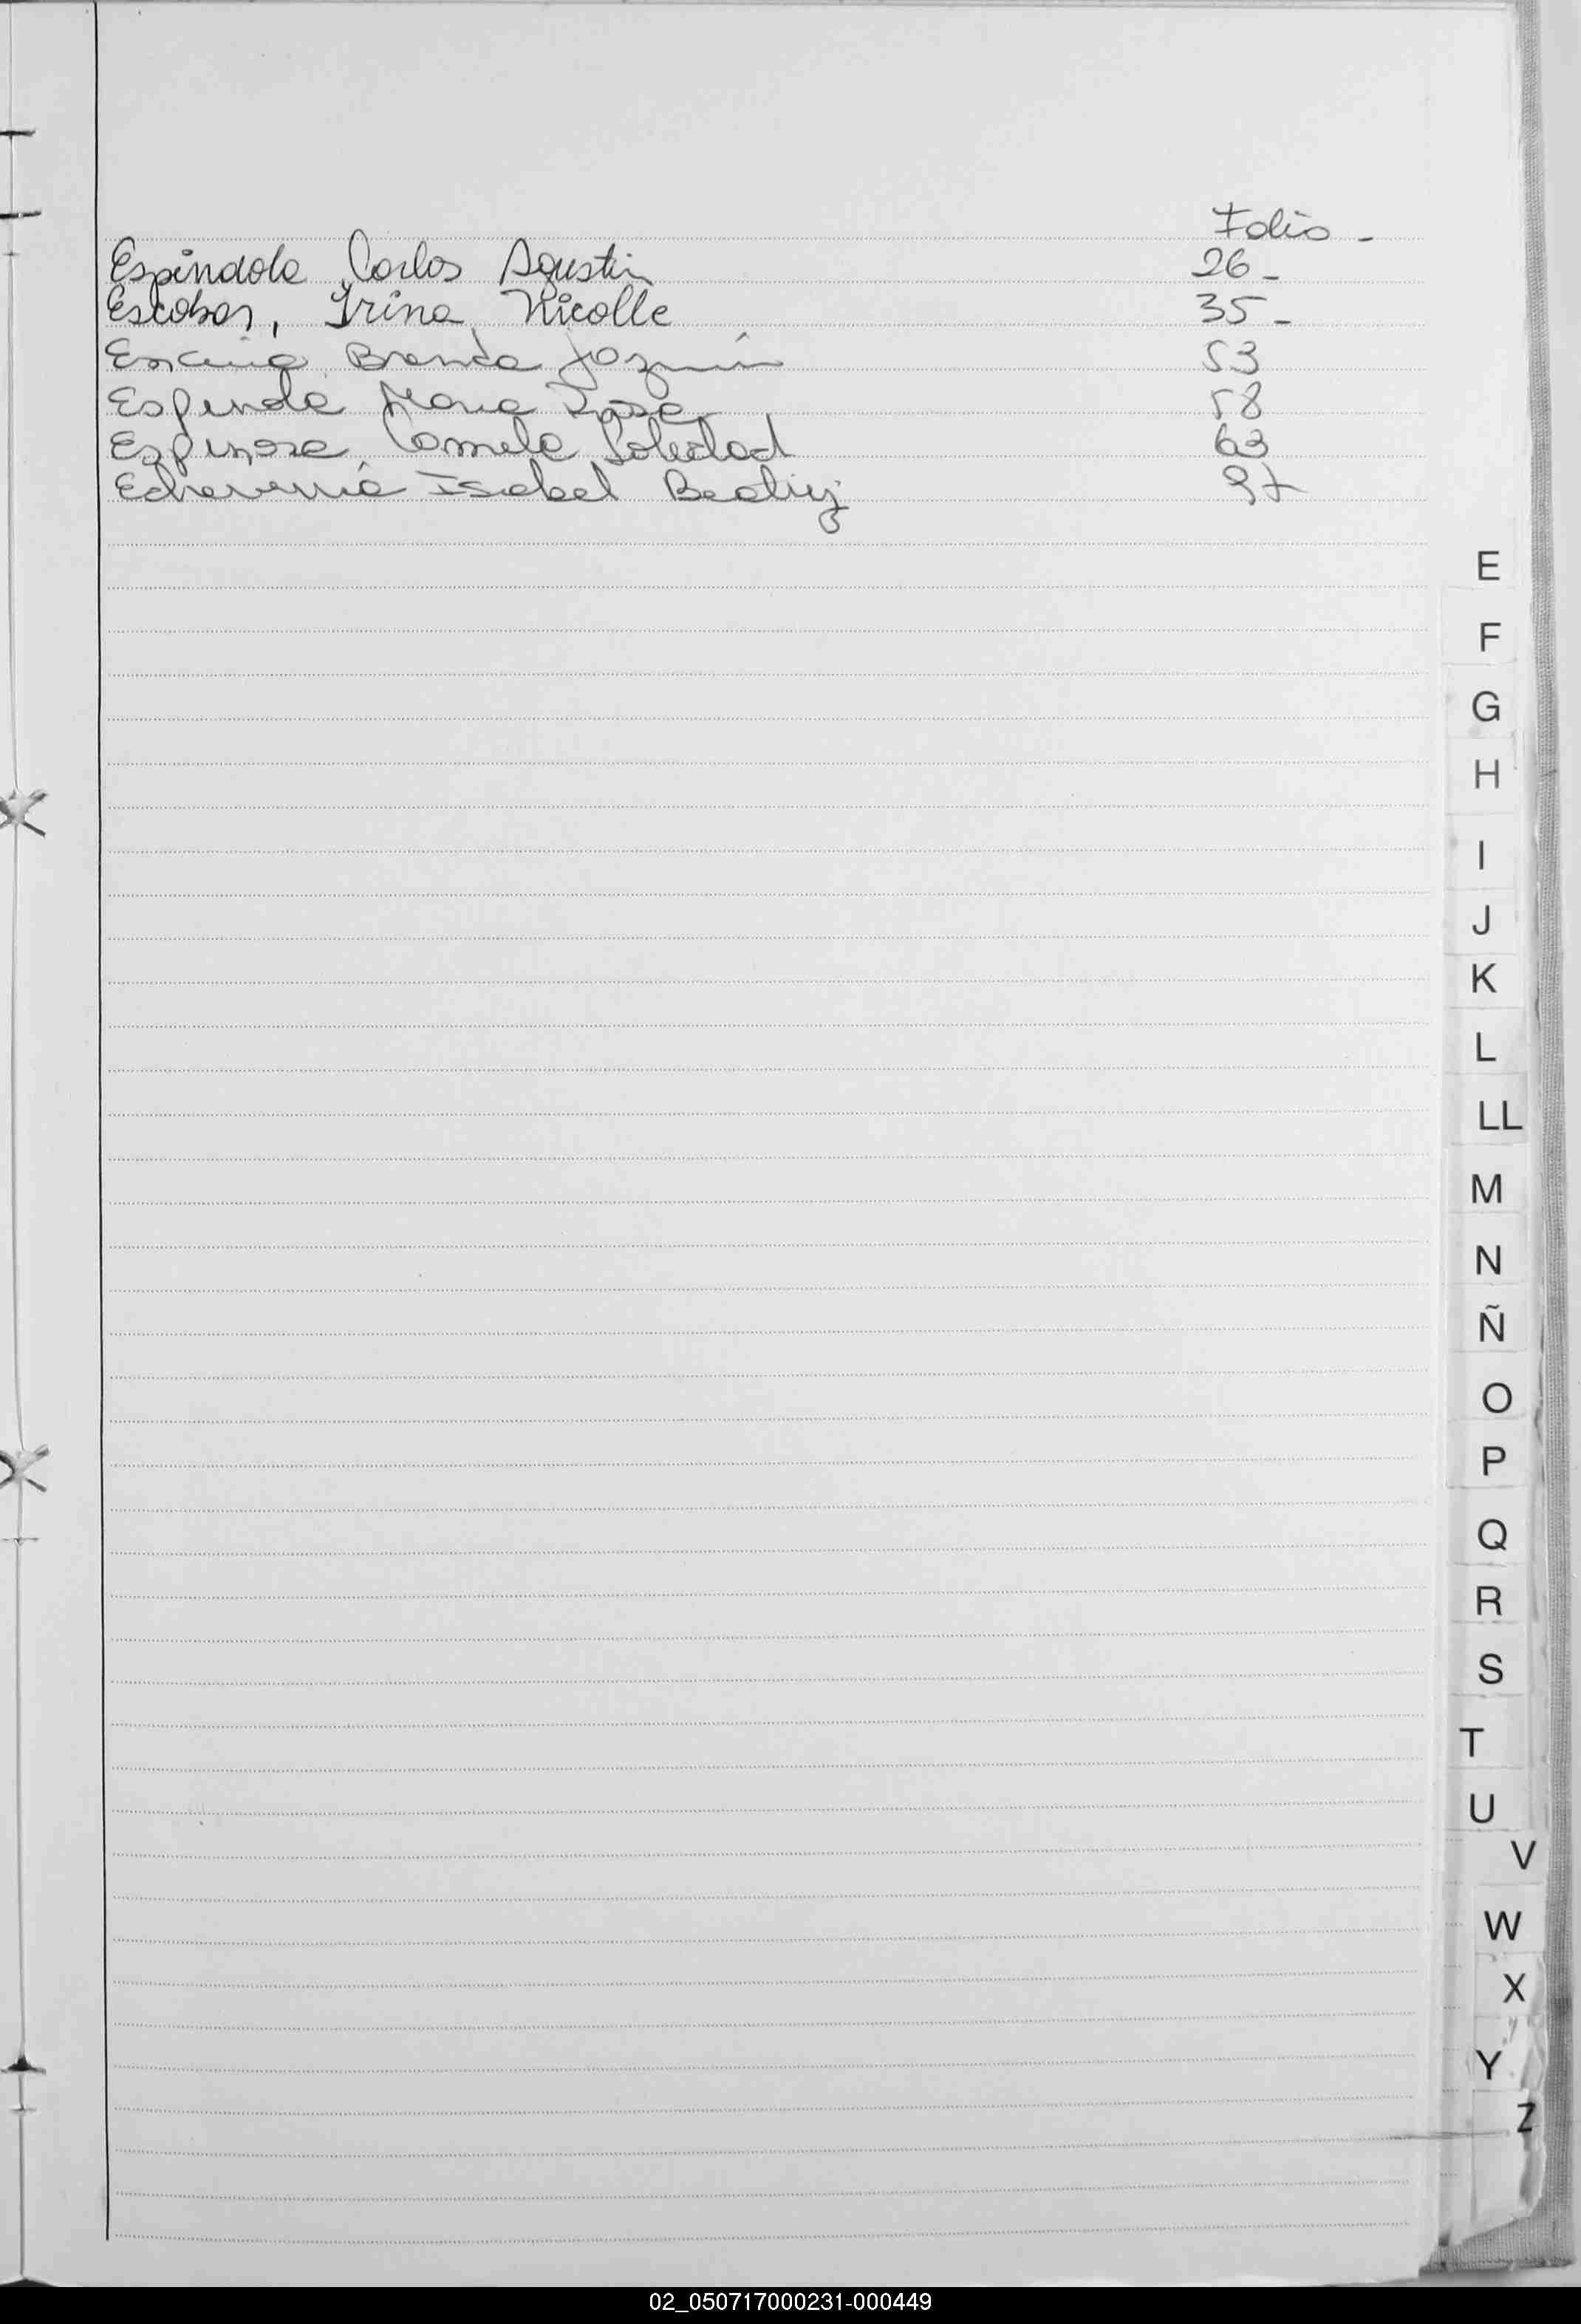 Folio -
Espindola Carlos Agustin 26 -
Escobar, Irina Nicolle 35 -
Encina Brenda Jazmín 53
Espinola Maria Rosa 58
Espinoza, Camila Soledad 63
Echeverria Isabel Beatriz 97
E
F
G
H
I
J
K
L
LL
M
N
Ñ
O
P
Q
R
S
T
U
V
W
X
Y
Z
02_050717000231-000449